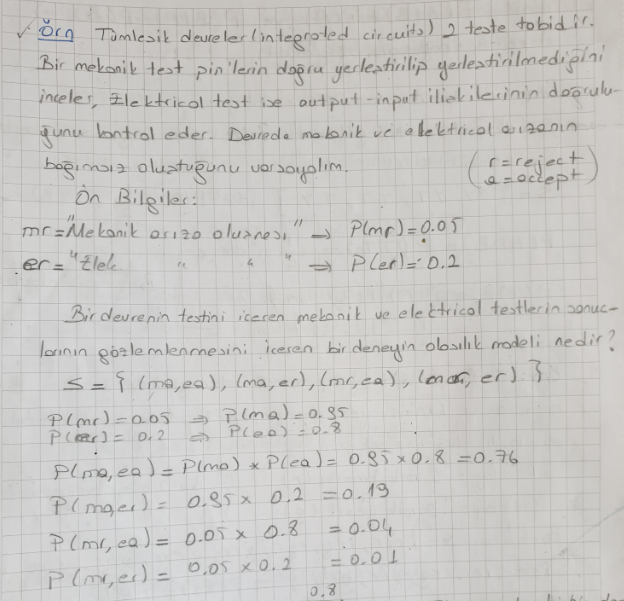 ✓ Örn Tümlesik devreler (integrated circuits) 2 teste tabidir.
Bir mekanik test pin'lerin doğru yerlestirilip yerlestirilmediğini
inceler, Elektrical test ise output-input iliskilerinin doğrulu-
ğunu kontrol eder. Devrede mekanik ve elektrical arızanın
bağımsız oluştuğunu varsayalım.
(r = reject
a = accept)
Ön Bilgiler:
mr = "Mekanik arıza olması" → P(mr) = 0.05
er = "Elek " " " ⇒ P(er) = 0.2
Bir devrenin testini iceren mekanik ve elektrical testlerin sonuc-
larının gözlemlenmesini iceren bir deneyin olasılık modeli nedir?
S = { (ma,ea), (ma,er), (mr,ea), (mr, er) }
P(mr) = 0.05 ⇒ P(ma) = 0.95
P(er) = 0.2 ⇒ P(ea) = 0.8
P(ma,ea) = P(ma) × P(ea) = 0.95 × 0.8 = 0.76
P(ma,er) = 0.95 × 0.2 = 0.19
P(mr,ea) = 0.05 × 0.8 = 0.04
P(mr,er) = 0.05 × 0.2 = 0.01
0.8